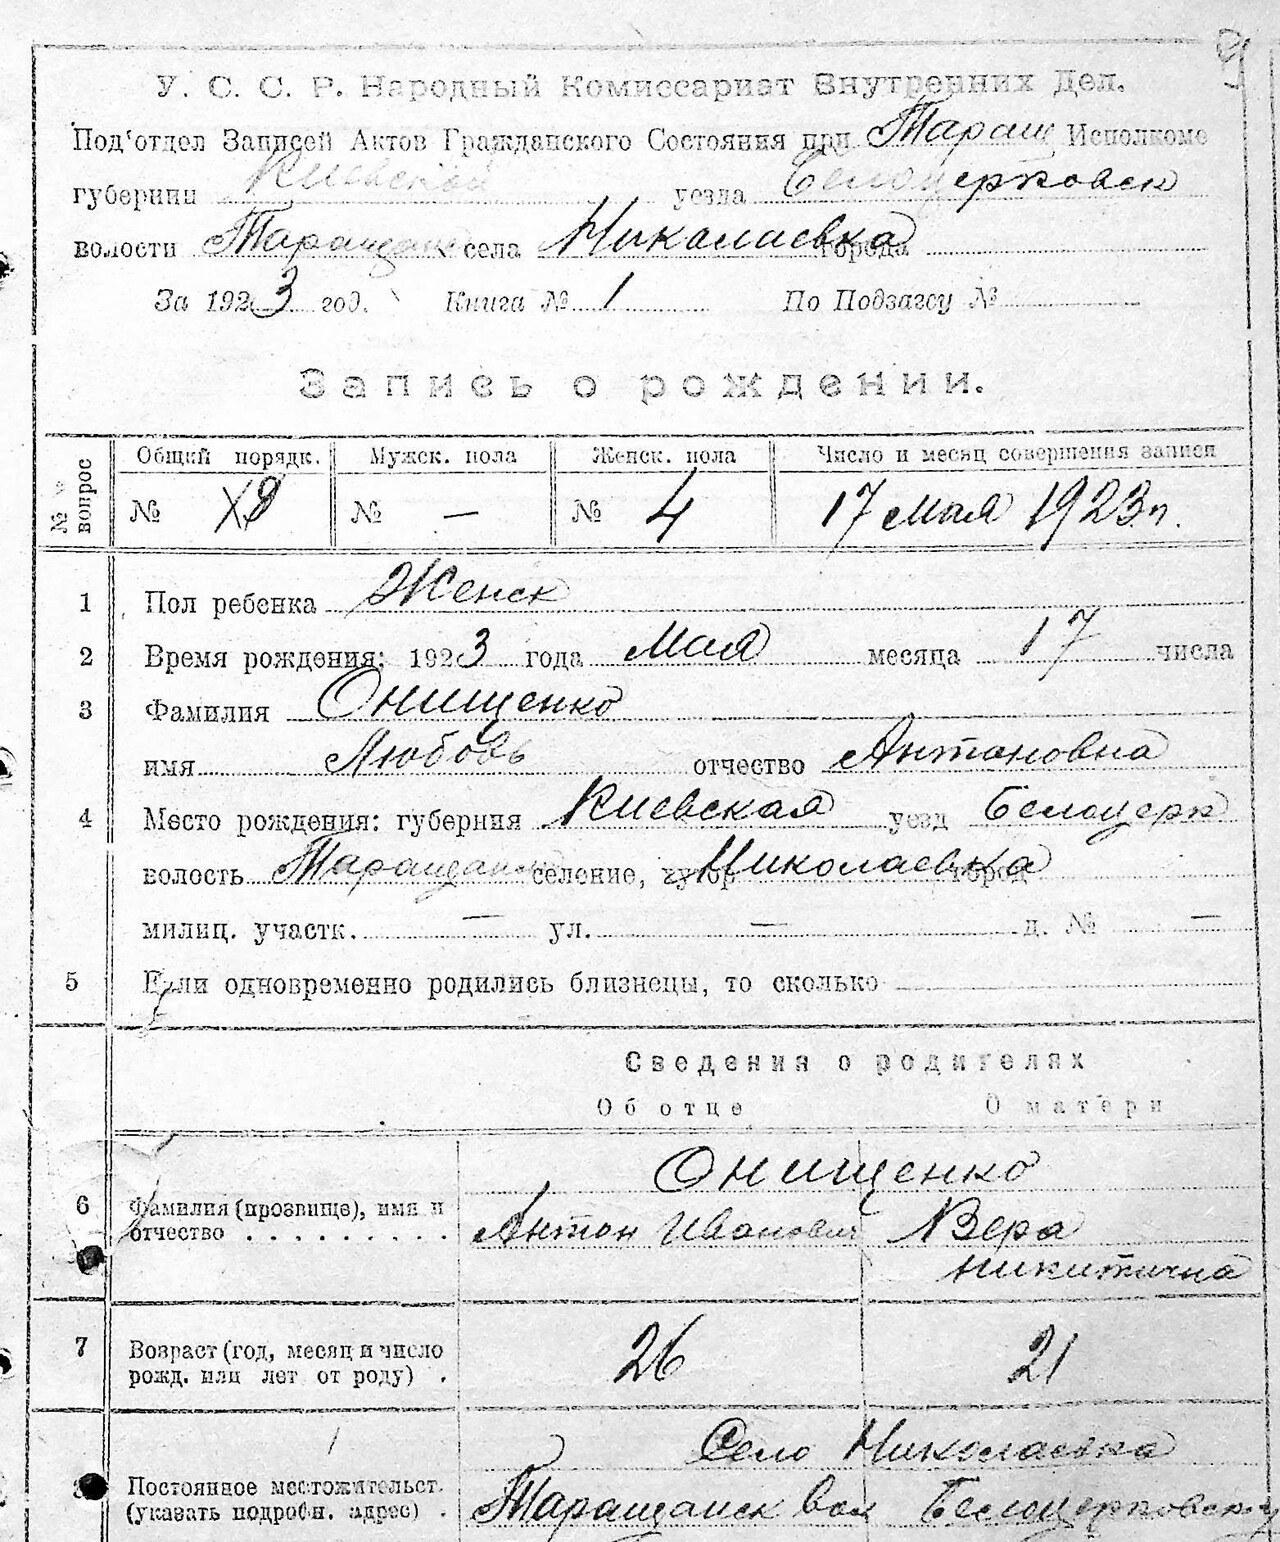 У. С. С. Р. Народный Комиссариат Внутренних Дел.
Под'отдел Записей Актов Гражданского Состояния при Таращ Исполкоме
губернии Киевской уезда Белоцерковск
волости Таращанск села Николаевка города
За 1923 год. Книга № 1 По Подзагсу №
Запись о рождении.
№ вопрос Общий порядк. Мужск. пола Женск. пола Число и месяц совершения записи
№ № — № 4 17 мая 1923 г.
1 Пол ребенка Женск
2 Время рождения: 1923 года Мая месяца 17 числа
3 Фамилия Онищенко
имя Любовь отчество Антановна
4 Место рождения: губерния Киевская уезд Белоцерк
волость Таращанск селение, хутор Николаевка город
милиц. участк. — ул. — д. № —
5 Если одновременно родились близнецы, то сколько
Сведения о родителях
Об отце О матери
Онищенко
6 Фамилия (прозвище), имя и
отчество . . . . . . . . . Антон Иванович Вера
никитична
7 Возраст (год, месяц и число
рожд. или лет от роду) . 26 21
Село Николаевка
Постоянное местожительст.
(указать подробн. адрес) . Таращанск вол Белоцерковску